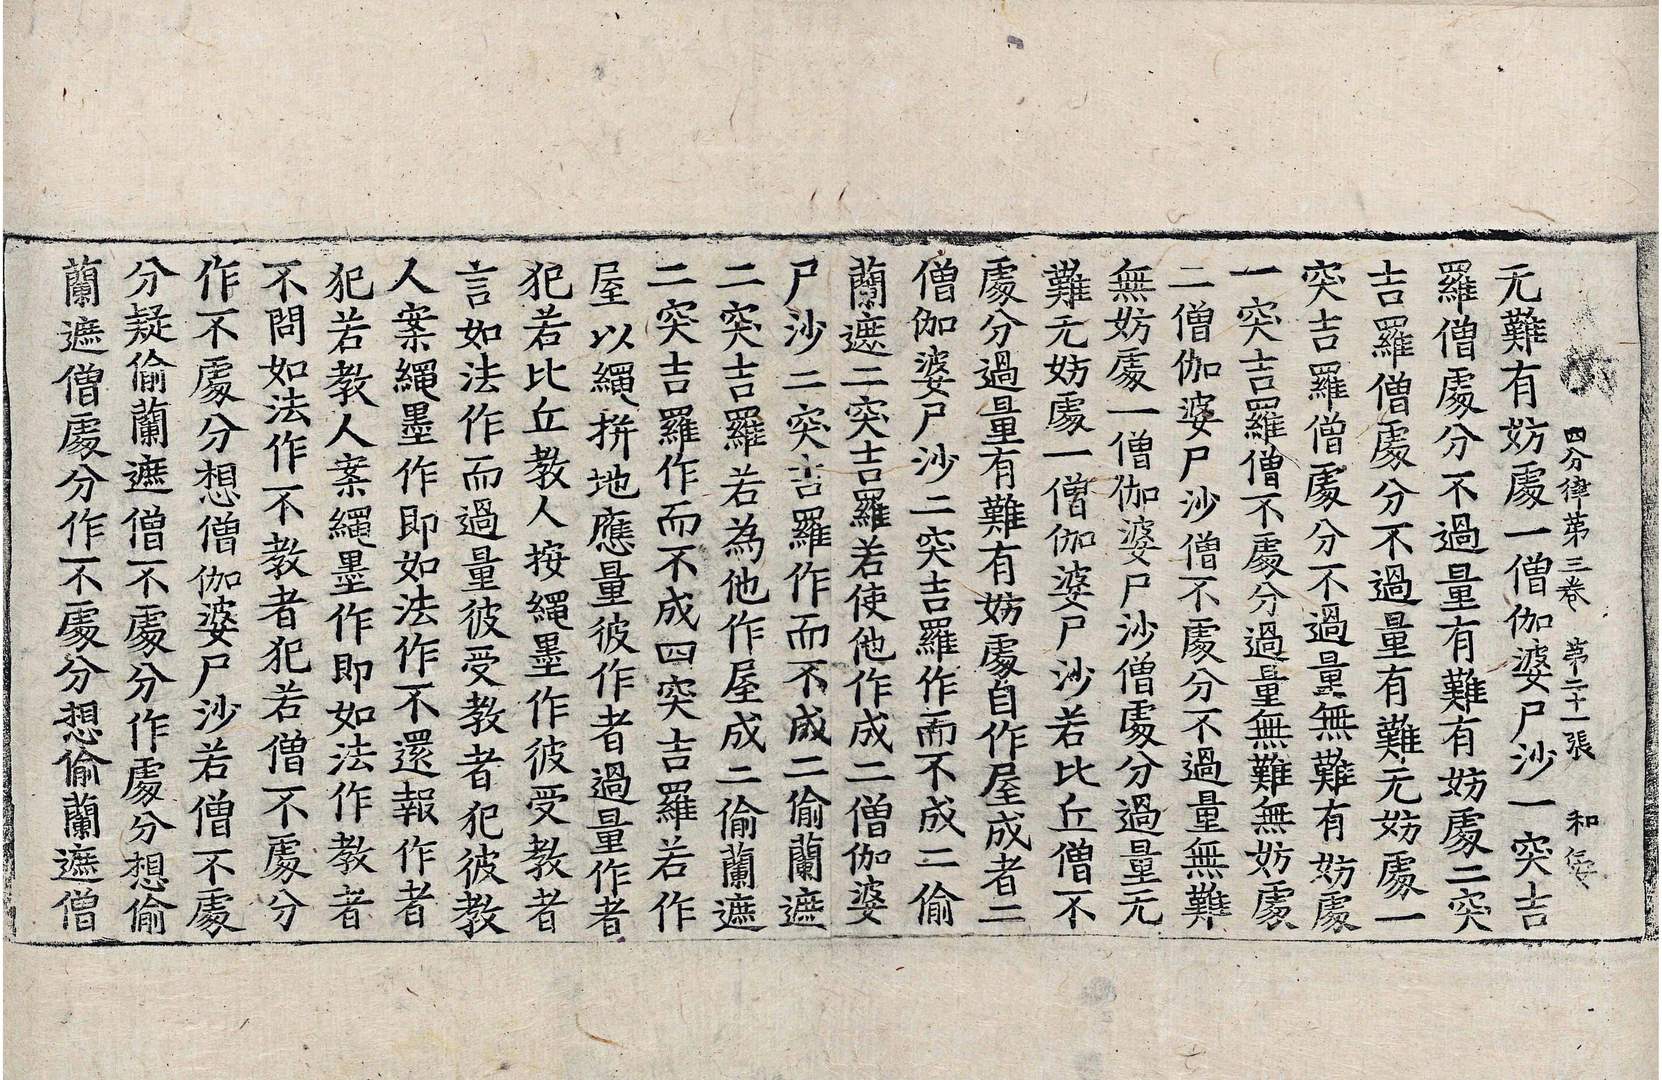 四分律第三卷 第二十一張 和
无難有妨處一僧伽婆尸沙一突吉
羅僧處分不過量有難有妨處二突
吉羅僧處分不過量有難无妨處一
突吉羅僧處分不過量無難有妨處
一突吉羅僧不處分過量無難無妨處
二僧伽婆尸沙僧不處分不過量無難
無妨處一僧伽婆尸沙僧處分過量无
難无妨處一僧伽婆尸沙若比丘僧不
處分過量有難有妨處自作屋成者二
僧伽婆尸沙二突吉羅作而不成二偷
蘭遮二突吉羅若使他作成二僧伽婆
尸沙二突吉羅作而不成二偷蘭遮
二突吉羅若為他作屋成二偷蘭遮
二突吉羅作而不成四突吉羅若作
屋以繩拼地應量彼作者過量作者
犯若比丘教人按繩墨作彼受教者
言如法作而過量彼受教者犯彼教
人案繩墨作即如法作不還報作者
犯若教人案繩墨作即如法作教者
不問如法作不教者犯若僧不處分
作不處分想僧伽婆尸沙若僧不處
分疑偷蘭遮僧不處分作處分想偷
蘭遮僧處分作不處分想偷蘭遮僧